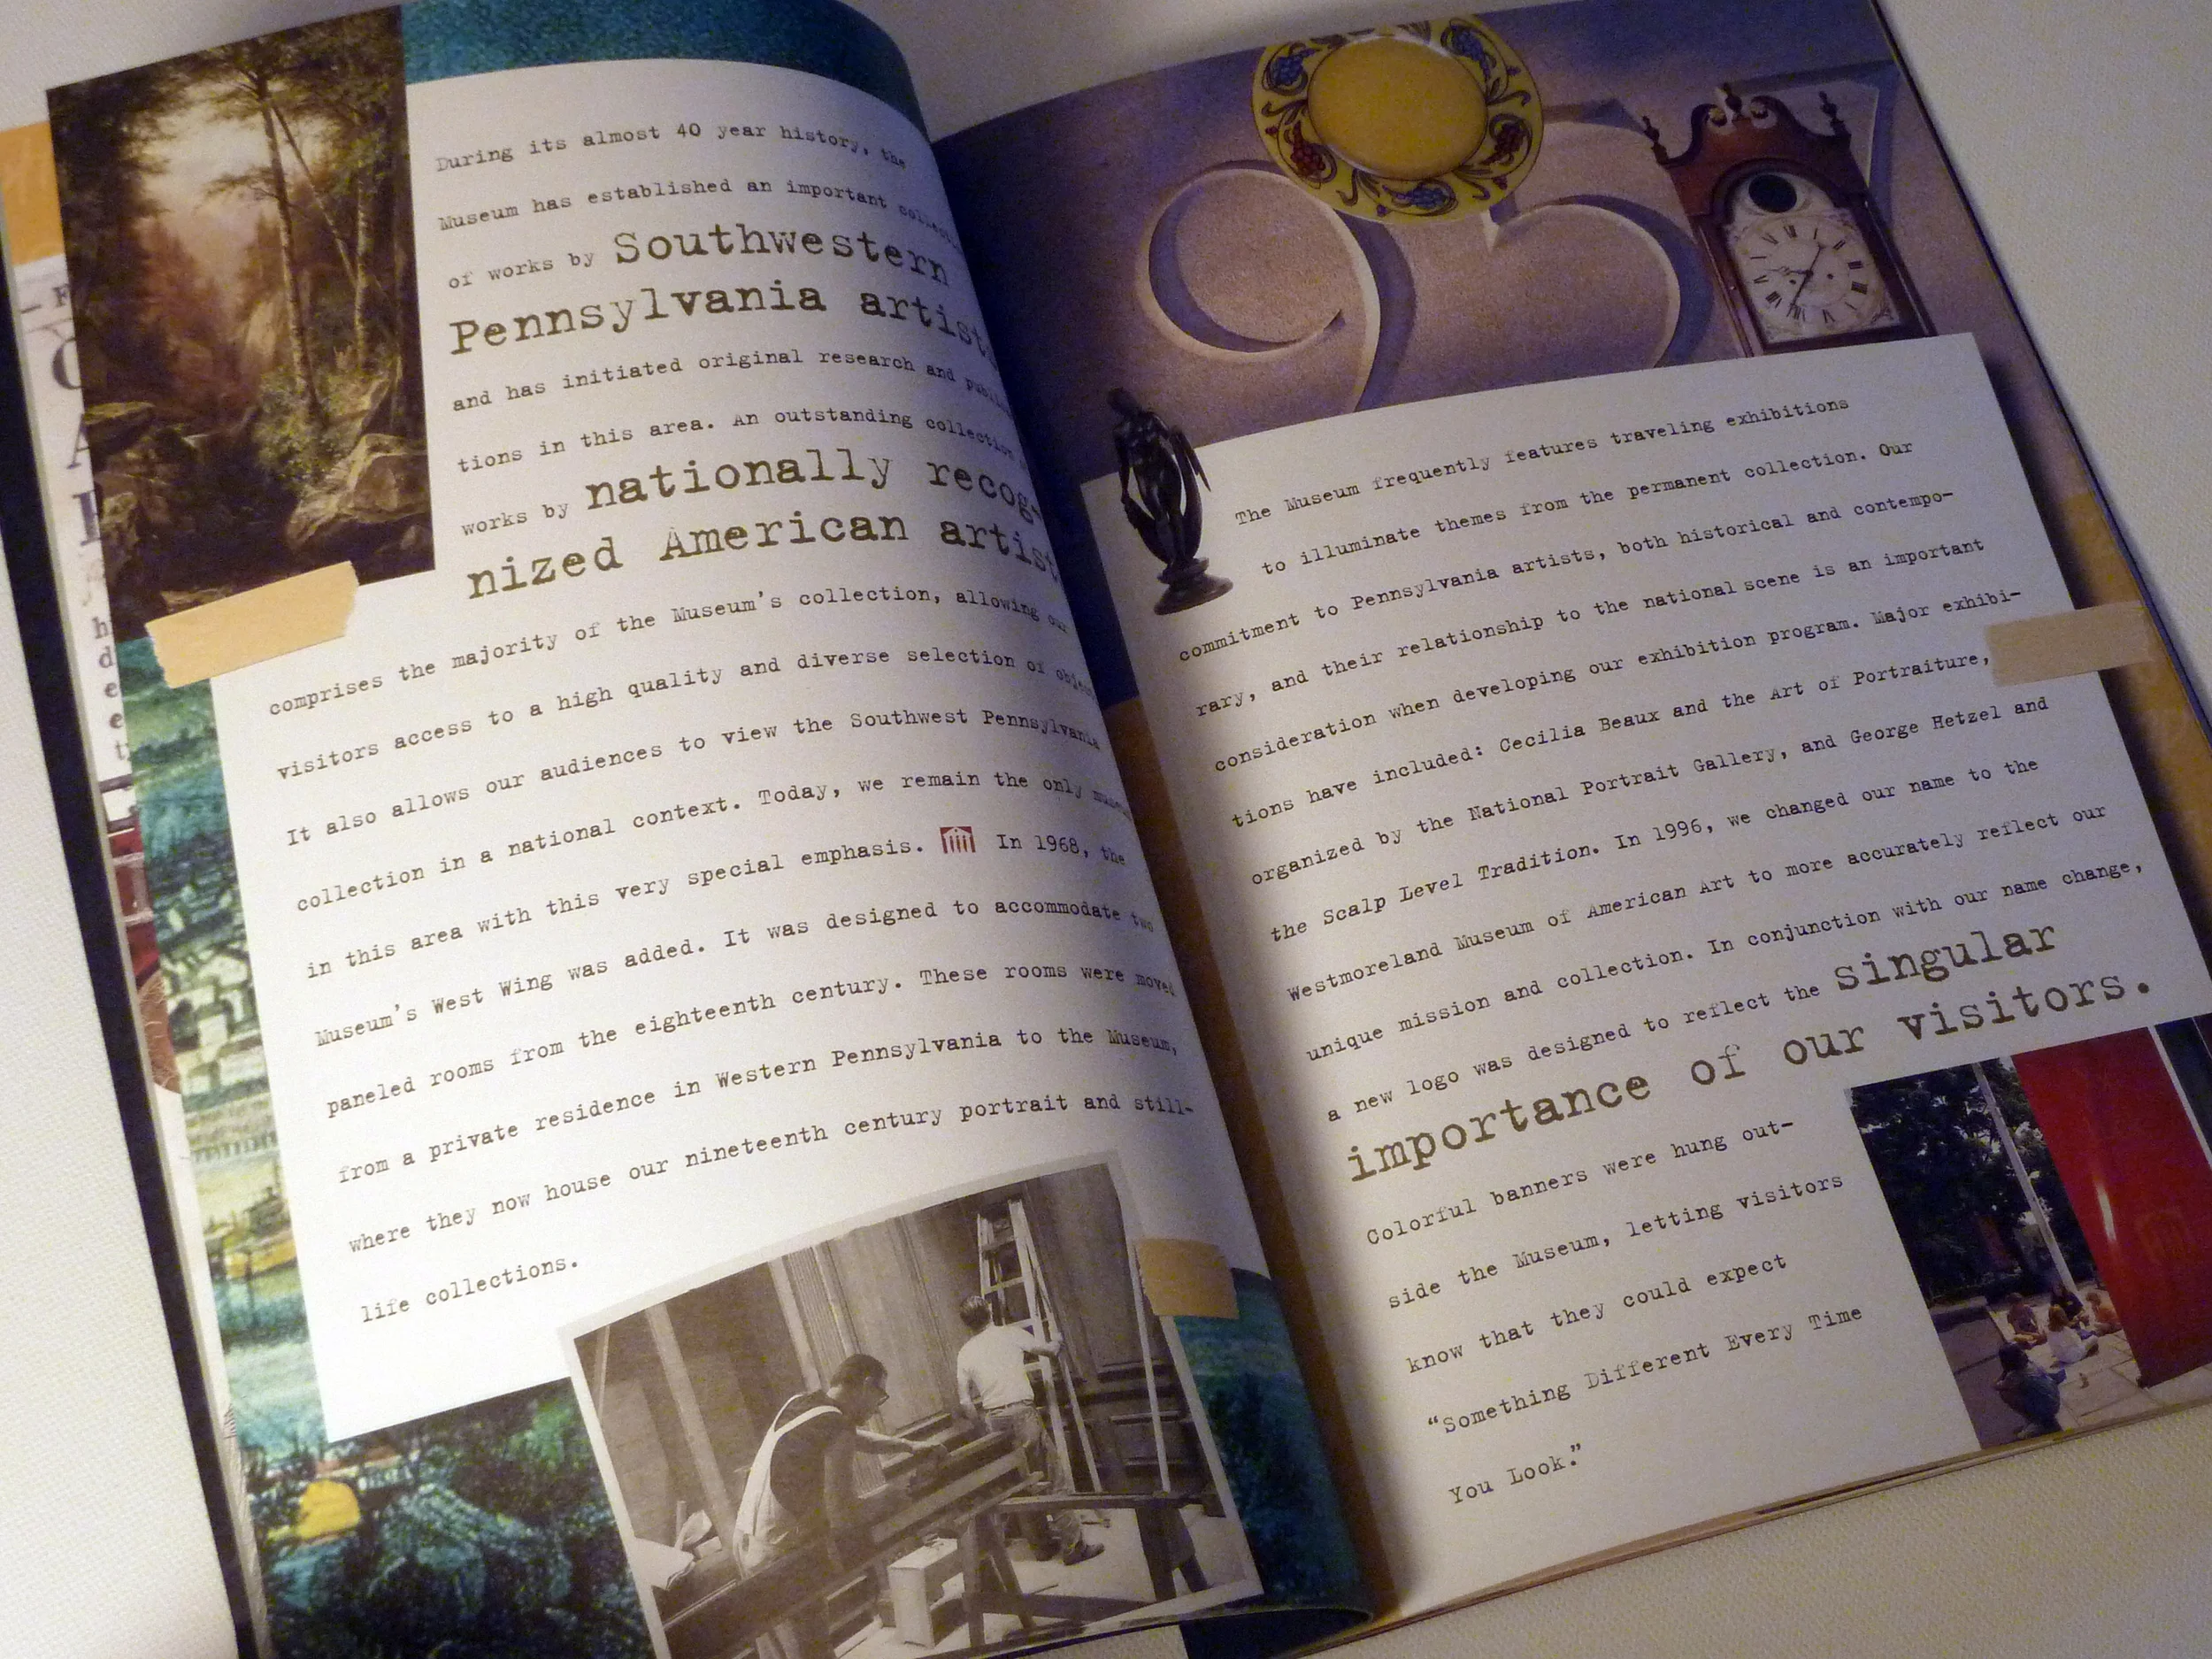 During its almost 40 year history, the
Museum has established an important
of works by Southwestern
Pennsylvania artists
and has initiated original research and
tions in this area. An outstanding collection
works by nationally recog-
nized American artist
comprises the majority of the Museum's collection, allowing our
visitors access to a high quality and diverse selection of
It also allows our audiences to view the Southwest Pennsylvania
collection in a national context. Today, we remain the only
in this area with this very special emphasis. In 1968, the
Museum's West Wing was added. It was designed to accommodate two
paneled rooms from the eighteenth century. These rooms were moved
from a private residence in Western Pennsylvania to the Museum,
where they now house our nineteenth century portrait and still-
life collections.
957
The Museum frequently features traveling exhibitions
to illuminate themes from the permanent collection. Our
commitment to Pennsylvania artists, both historical and contempo-
rary, and their relationship to the national scene is an important
consideration when developing our exhibition program. Major exhibi-
tions have included: Cecilia Beaux and the Art of Portraiture,
organized by the National Portrait Gallery, and George Hetzel and
the Scalp Level Tradition. In 1996, we changed our name to the
Westmoreland Museum of American Art to more accurately reflect our
unique mission and collection. In conjunction with our name change,
a new logo was designed to reflect the singular
importance of our visitors.
Colorful banners were hung out-
side the Museum, letting visitors
know that they could expect
“Something Different Every Time
You Look.”